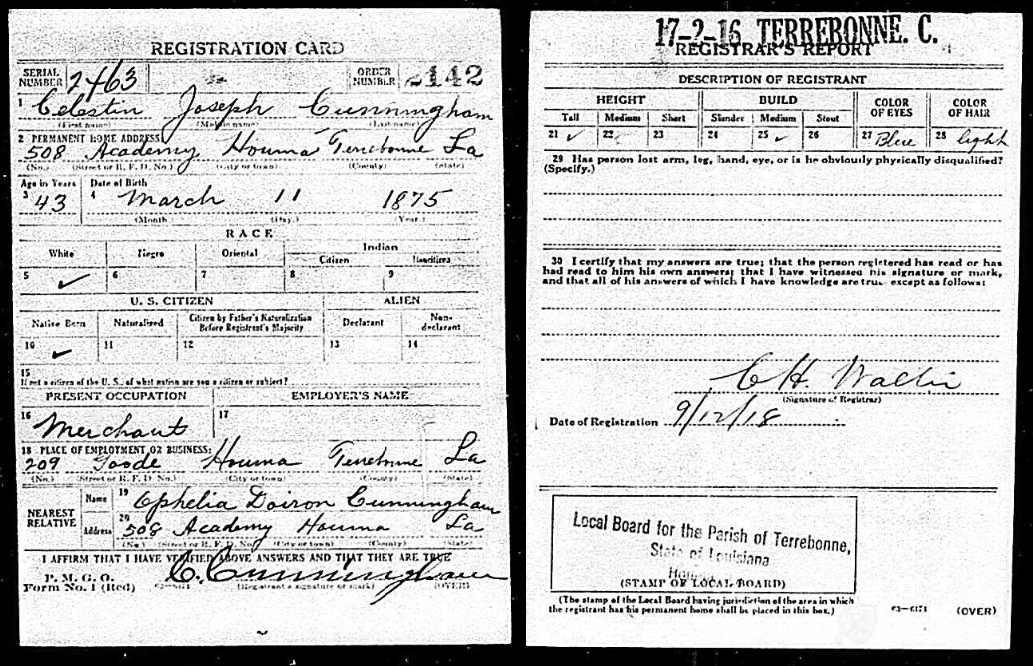 REGISTRATION CARD
SERIAL NUMBER 2463 ORDER NUMBER 2142
1 Celestin Joseph Cunningham
(First name) (Middle name) (Last name)
2 PERMANENT HOME ADDRESS:
508 Academy Houma Terrebonne La
(No.) (Street or R. F. D. No.) (City or town) (County) (State)
Age in Years Date of Birth
3 43 4 March 11 1875
(Month) (Day) (Year)
RACE
White Negro Oriental Indian
Citizen Noncitizen
5 ✓ 6 7 8 9
U. S. CITIZEN ALIEN
Native Born Naturalized Citizen by Father's Naturalization Before Registrant's Majority Declarant Non-declarant
10 ✓ 11 12 13 14
15
If not a citizen of the U. S., of what nation are you a citizen or subject?
PRESENT OCCUPATION EMPLOYER'S NAME
16 Merchant 17
18 PLACE OF EMPLOYMENT OR BUSINESS:
209 Goode Houma Terrebonne La
(No.) (Street or R. F. D. No.) (City or town) (County) (State)
NEAREST RELATIVE Name 19 Ophelia Doiron Cunningham
Address 20 508 Academy Houma La
(No.) (Street or R. F. D. No.) (City or town) (County) (State)
I AFFIRM THAT I HAVE VERIFIED ABOVE ANSWERS AND THAT THEY ARE TRUE
P. M. G. O.
Form No. 1 (Red) C. Cunningham
(Registrant's signature or mark) (OVER)
17-2-16 TERREBONNE. C.
REGISTRAR'S REPORT
DESCRIPTION OF REGISTRANT
HEIGHT BUILD COLOR OF EYES COLOR OF HAIR
Tall Medium Short Slender Medium Stout
21 ✓ 22 23 24 25 ✓ 26 27 Blue 28 light
29 Has person lost arm, leg, hand, eye, or is he obviously physically disqualified?
(Specify.)
30 I certify that my answers are true; that the person registered has read or has
had read to him his own answers; that I have witnessed his signature or mark,
and that all of his answers of which I have knowledge are true, except as follows:
(Signature of Registrar)
Date of Registration 9/12/18
Local Board for the Parish of Terrebonne,
State of Louisiana
(STAMP OF LOCAL BOARD)
(The stamp of the Local Board having jurisdiction of the area in which
the registrant has his permanent home shall be placed in this box.)
(OVER)